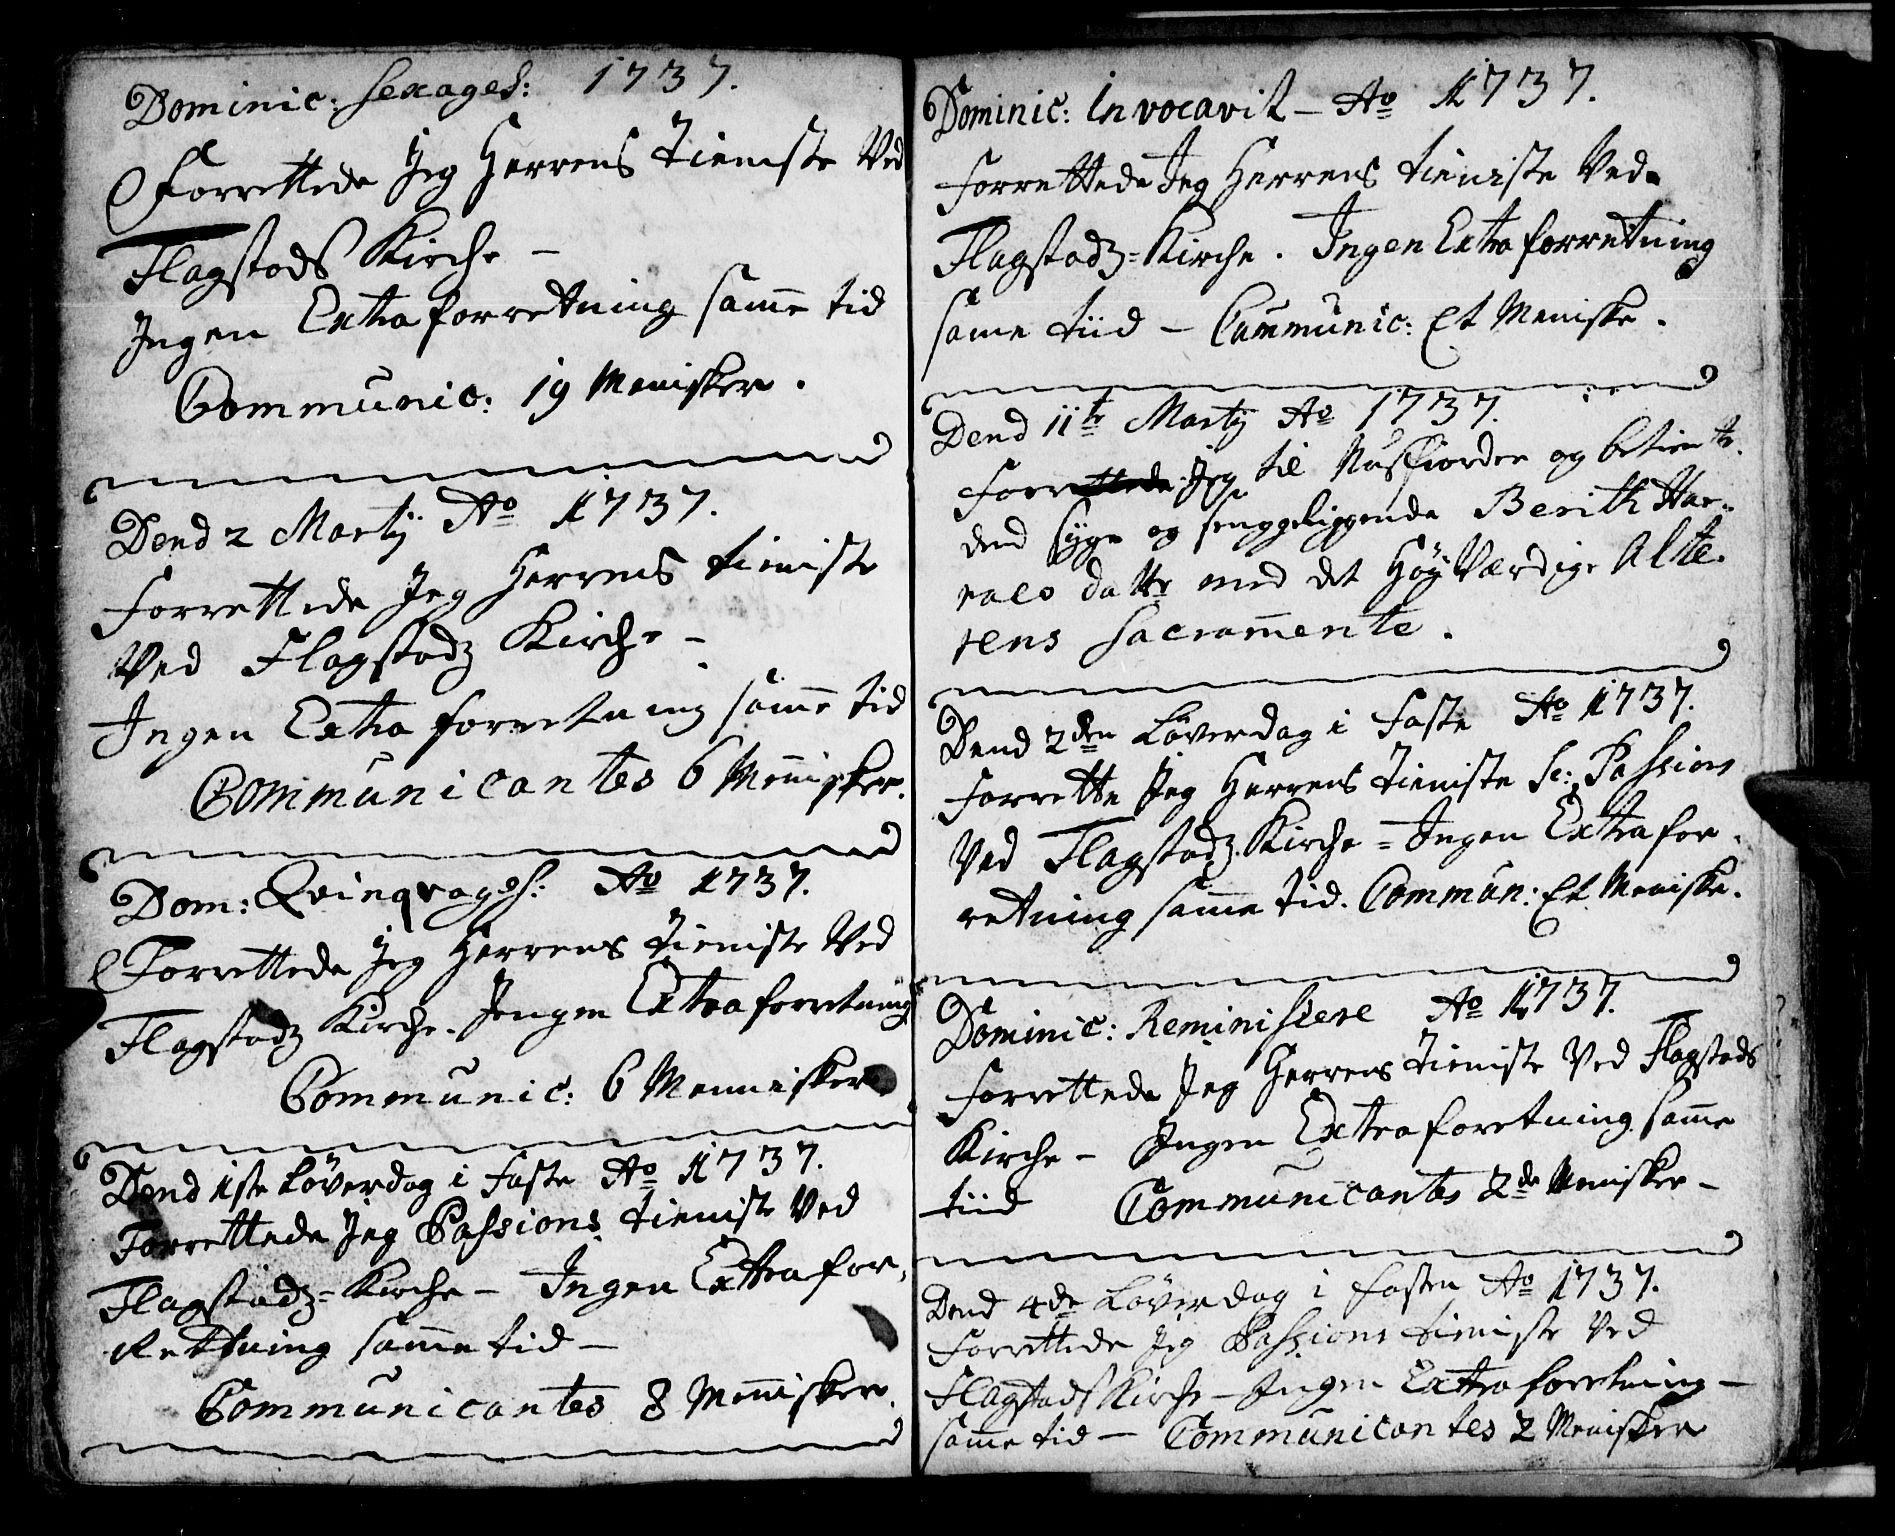 Dominic: Sexages: 1737.
Forrettede Jeg Herrens Tieniste Ved
Flagstads Kirche –
Ingen Extra forretning samme tid
Communic: 19 Menisker.
Dend 2 Martij Ao 1737.
Forrettede Jeg Herrens tieniste
Ved Flagstadz Kirche –
Ingen Extra forretning samme tid
Communicantes 6 Menisker.
Dom: Qvinqvages: Ao 1737.
Forrettede Jeg Herrens Tieniste Ved
Flagstadz Kirche. Jngen Extra forretning
Communic: 6 Mennisker
Dend 1ste Løverdag i Faste Ao 1737.
Forrettede Jeg Passions tieniste Ved
Flagstadz-Kirche – Ingen Extra for-
Rettning samme tid –
Communicantes 8 Menisker.
Dominic: Invocavit – Ao 1737.
Forrettede Jeg Herrens tieniste Ved
Flagstadz-Kirche. Ingen Extra forretning
same tiid – Communic: Et Meniske.
Dend 11te Martij Ao 1737.
Forrettede Jeg til Nusfiorden og betiente
dend syge og senggeliggende Berith Har-
rals datter med det HøyVærdige Alte-
rens Sacramente.
Dend 2den Løverdag i Faste Ao 1737.
Forrette Jeg Herrens Tieniste Sc: Passions
Ved Flagstadz Kirche = Ingen Extra for-
retning samme tid. Commun: Et Meniske.
Dominic: Reminiscere Ao 1737.
Forrettede Jeg Herrens Tieniste Ved Flagstads
Kirche – Ingen Extra foretning samme
tiid Communicantes 2de Menisker –
Dend 4de Løverdag i Fasten Ao 1737.
Forrettede Jeg Passions tieniste Ved
Flagstads Kirche – Ingen Extra forretning –
samme tid – Communicantes 2 Menisker